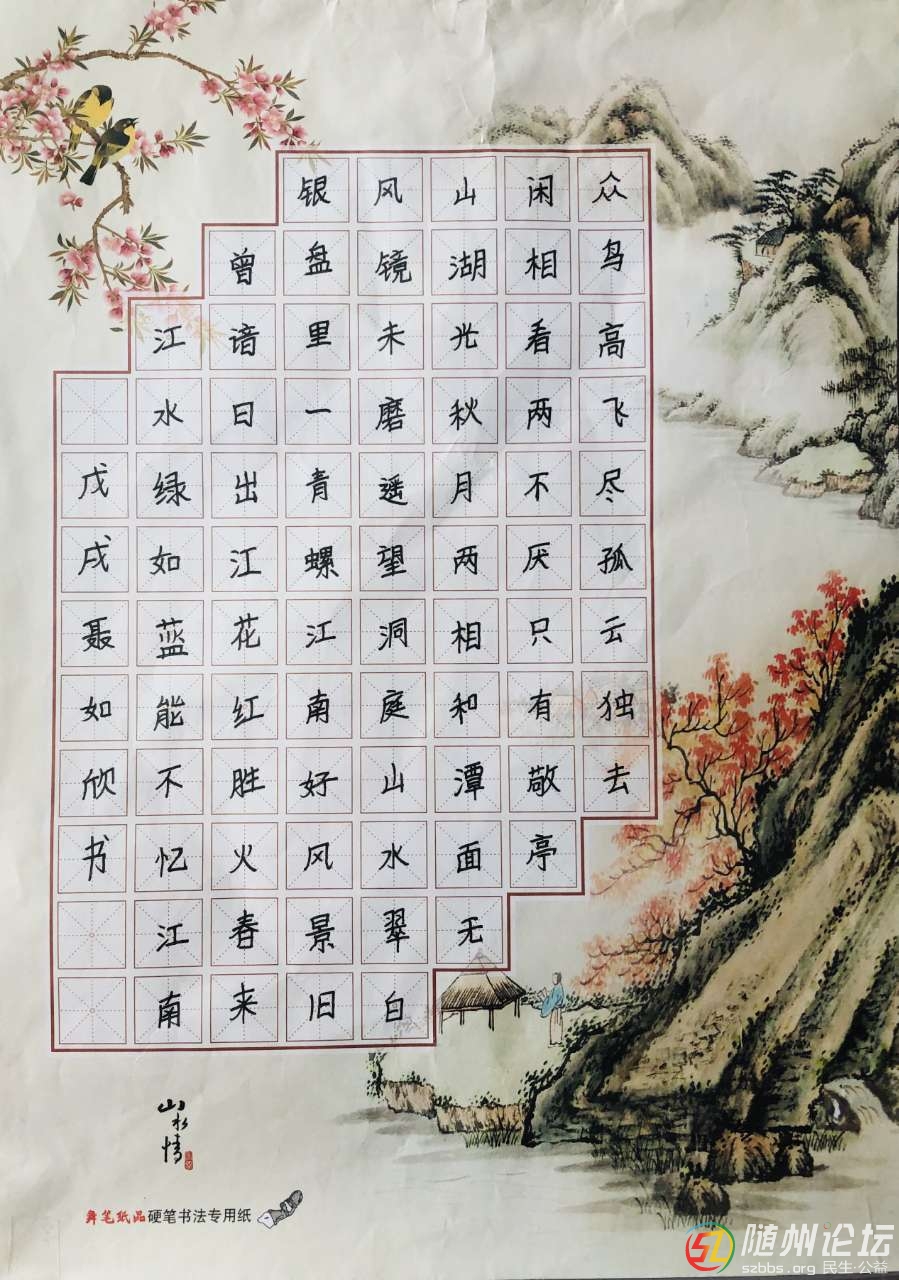 众鸟高飞尽孤云独去
闲相看两不厌只有敬亭
山湖光秋月两相和潭面无
风镜未磨遥望洞庭山水翠白
银盘里一青螺江南好风景旧
曾谙日出江花红胜火春来
江水绿如蓝能不忆江南
戊戌聂如欣书
山水情
舞笔纸品硬笔书法专用纸
随州论坛
szbbs.org 民生·公益